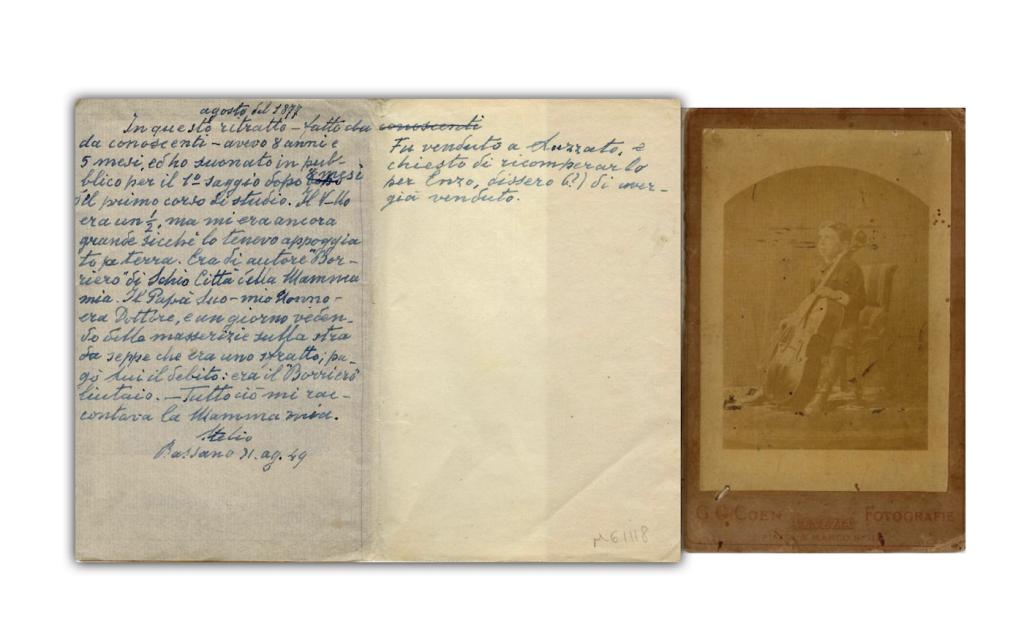 agosto del 1877
In questo ritratto – fatto da conoscenti
da conoscenti – avevo 8 anni e
5 mesi, ed ho suonato in pub-
blico per il 1º saggio dopo 8 mesi
del primo corso di studio. Il V-llo
era un ½, ma mi era ancora
grande sicchè lo tenevo appoggia
to per terra. Era di autore "Bor-
riero" di Schio Città della Mamma
mia. Il Papà suo – mio Nonno –
era Dottore, e un giorno veden-
do delle masserizie sulla stra
da seppe che era uno sfratto; pa-
gò lui il debito: era il "Borriero"
liutaio. – Tutto ciò mi rac-
contava la Mamma mia.
Stelio
Bassano 31. ag. 49
Fu venduto a Luzzato, e
chiesto di ricomperarlo
per Enzo, dissero (?) di aver-
già venduto.
M61118
G. C. COEN
FOTOGRAFIE